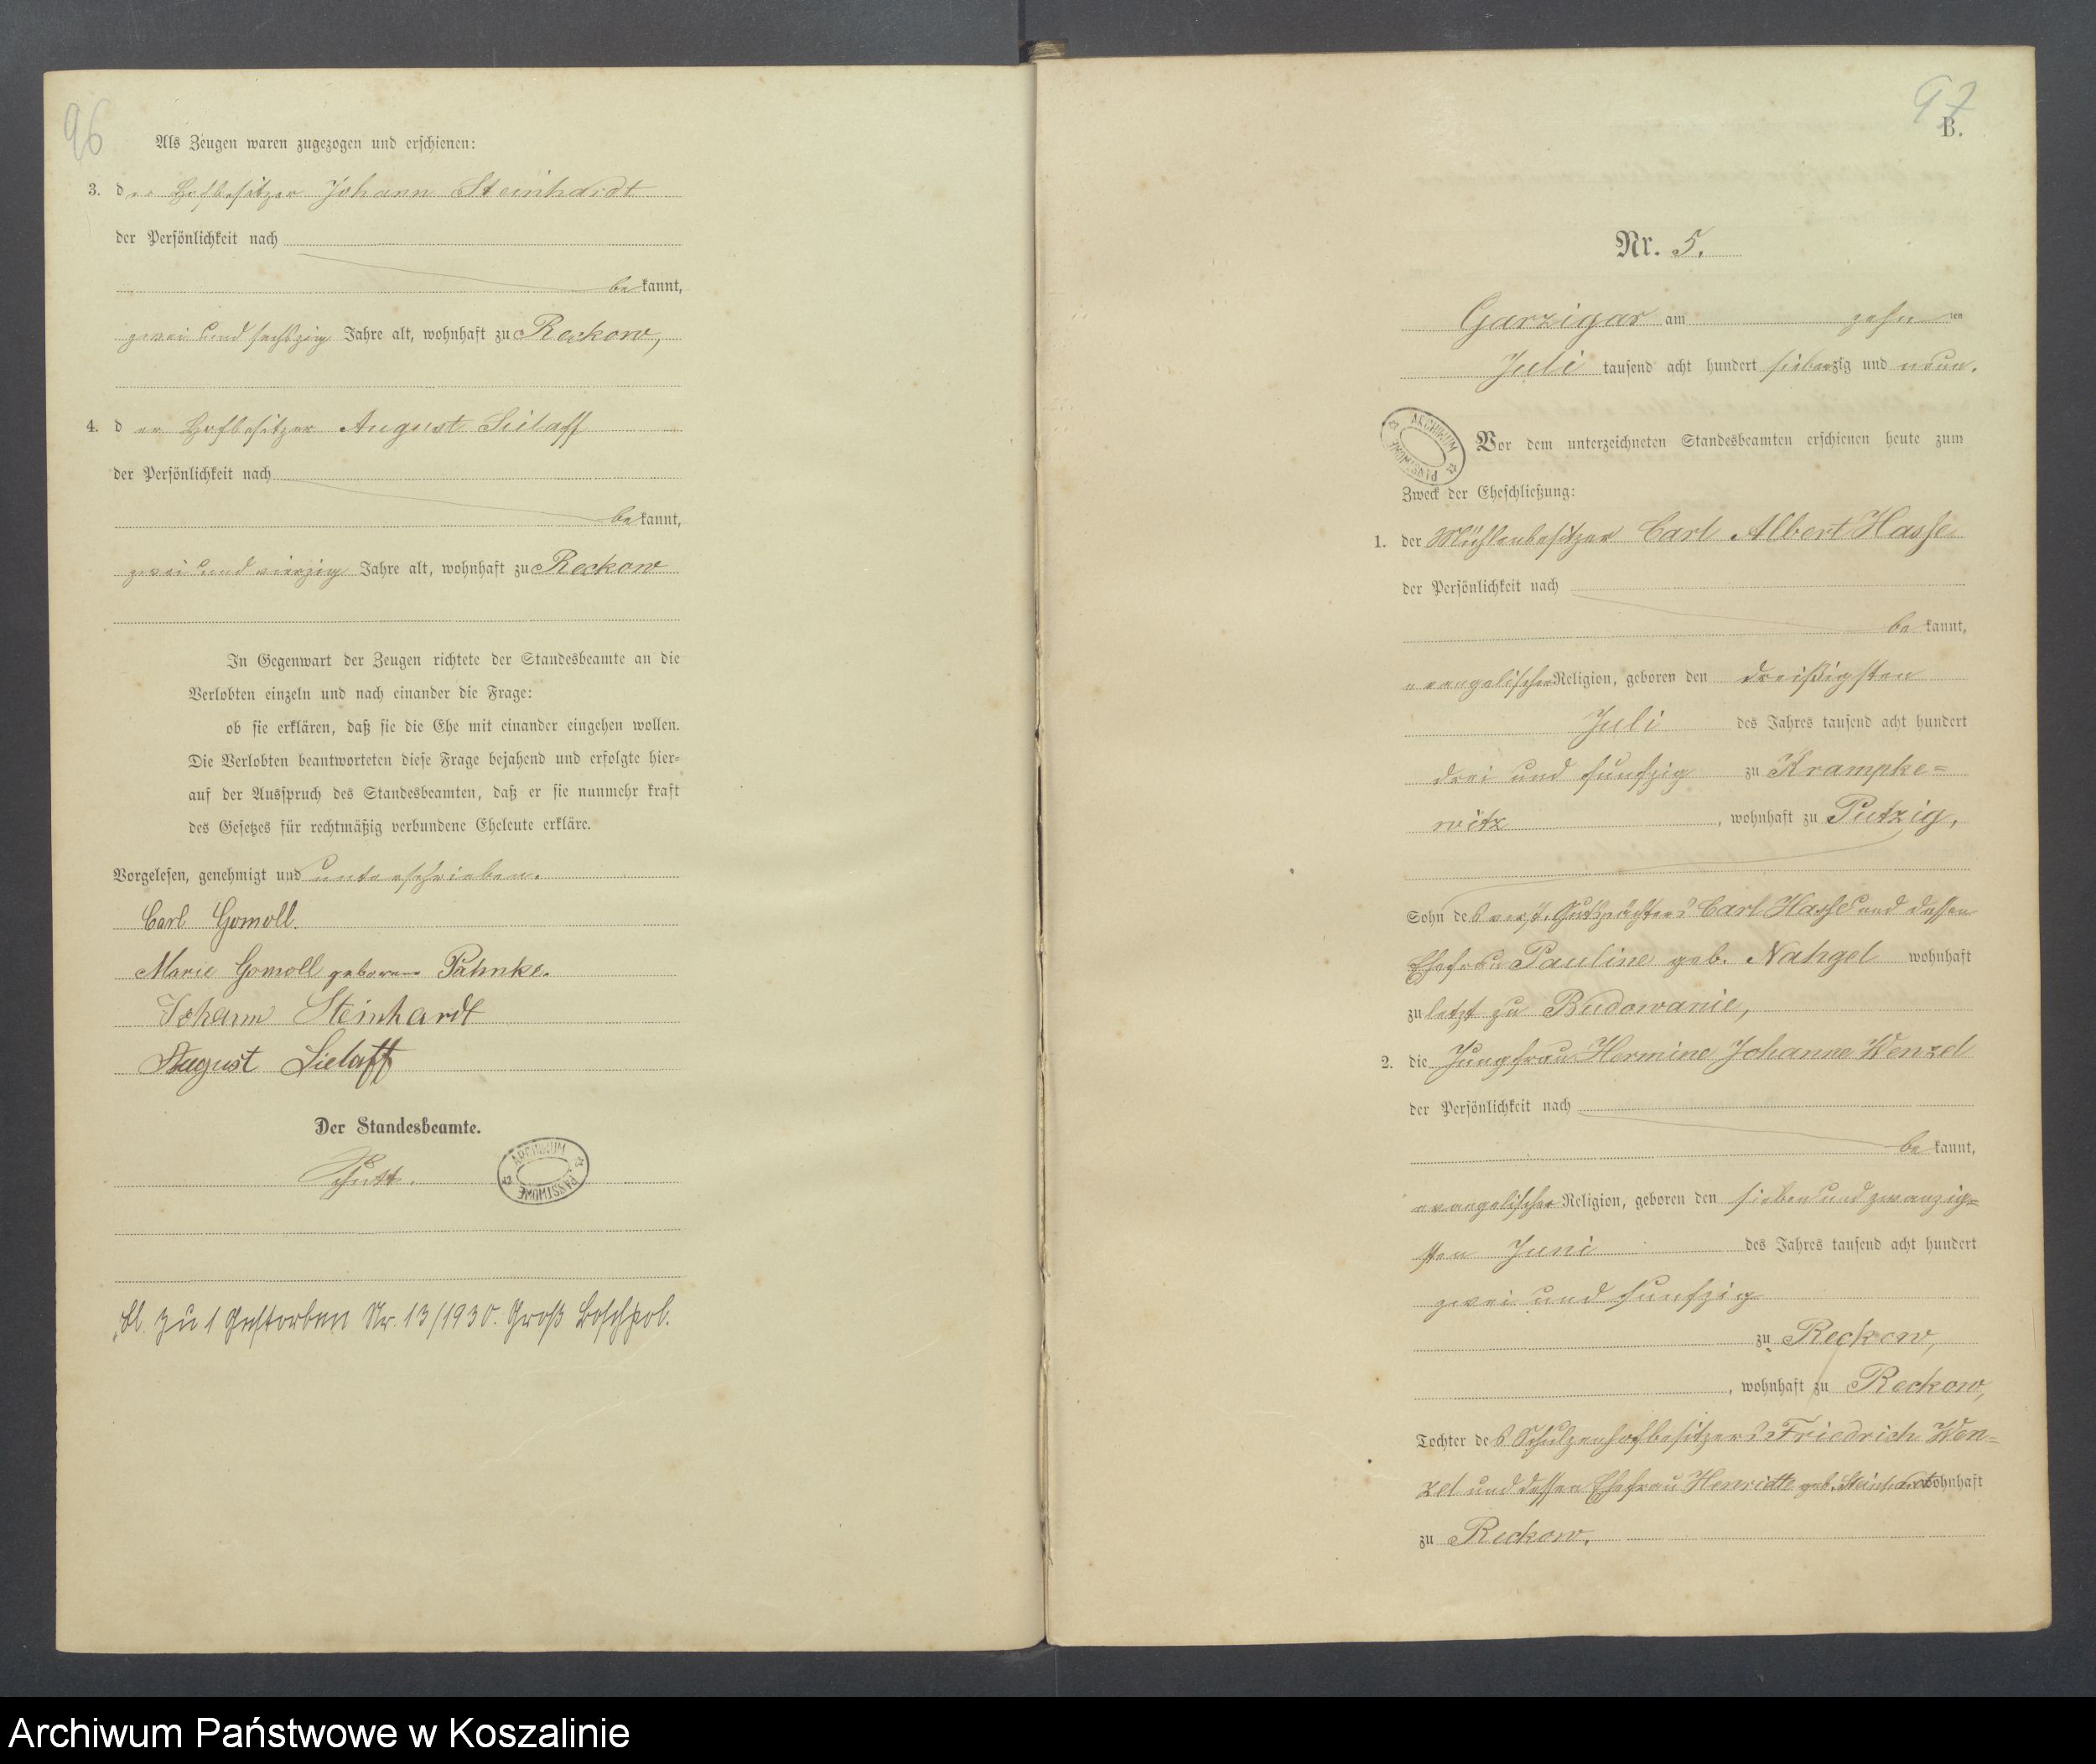 96
Als Zeugen waren zugezogen und erschienen:
3. der Hofbesitzer Johann Steinhardt
der Persönlichkeit nach
bekannt,
zwei und sechszig Jahre alt, wohnhaft zu Reckow,
4. der Hofbesitzer August Lielaff
der Persönlichkeit nach
bekannt,
zwei und vierzig Jahre alt, wohnhaft zu Reckow
In Gegenwart der Zeugen richtete der Standesbeamte an die
Verlobten einzeln und nach einander die Frage:
ob sie erklären, daß sie die Ehe mit einander eingehen wollen.
Die Verlobten beantworteten diese Frage bejahend und erfolgte hier-
auf der Ausspruch des Standesbeamten, daß er sie nunmehr kraft
des Gesetzes für rechtmäßig verbundene Eheleute erkläre.
Vorgelesen, genehmigt und unterschrieben.
Carl Gomoll.
Marie Gomoll geborene Pahnke.
Johann Steinhardt
August Lielaff
Der Standesbeamte.
ARCHIWUM PAŃSTWOWE
zu 1 Gestorben Nr. 13/1930. Groß Boschpol.
97
B.
Nr. 5.
Garzigar am zehnten
Juli tausend acht hundert siebenzig und neun.
ARCHIWUM PAŃSTWOWE
Vor dem unterzeichneten Standesbeamten erschienen heute zum
Zweck der Eheschließung:
1. der Mühlenbesitzer Carl Albert Hasse
der Persönlichkeit nach
bekannt,
evangelischer Religion, geboren den dreißigsten
Juli des Jahres tausend acht hundert
drei und funfzig zu Krampke-
witz, wohnhaft zu Putzig,
Sohn des verst. Gutspächters Carl Hasse und dessen
Ehefrau Pauline geb. Nahgel wohnhaft
zuletzt zu Budowanie,
2. die Jungfrau Hermine Johanne Wenzel
der Persönlichkeit nach
bekannt,
evangelischer Religion, geboren den sieben und zwanzig-
sten Juni des Jahres tausend acht hundert
zwei und funfzig
zu Reckow,
, wohnhaft zu Reckow,
Tochter des Schulzenhofbesitzers Friedrich Wen-
zel und dessen Ehefrau Henriette geb. Steinhardt wohnhaft
zu Reckow.
Archiwum Państwowe w Koszalinie